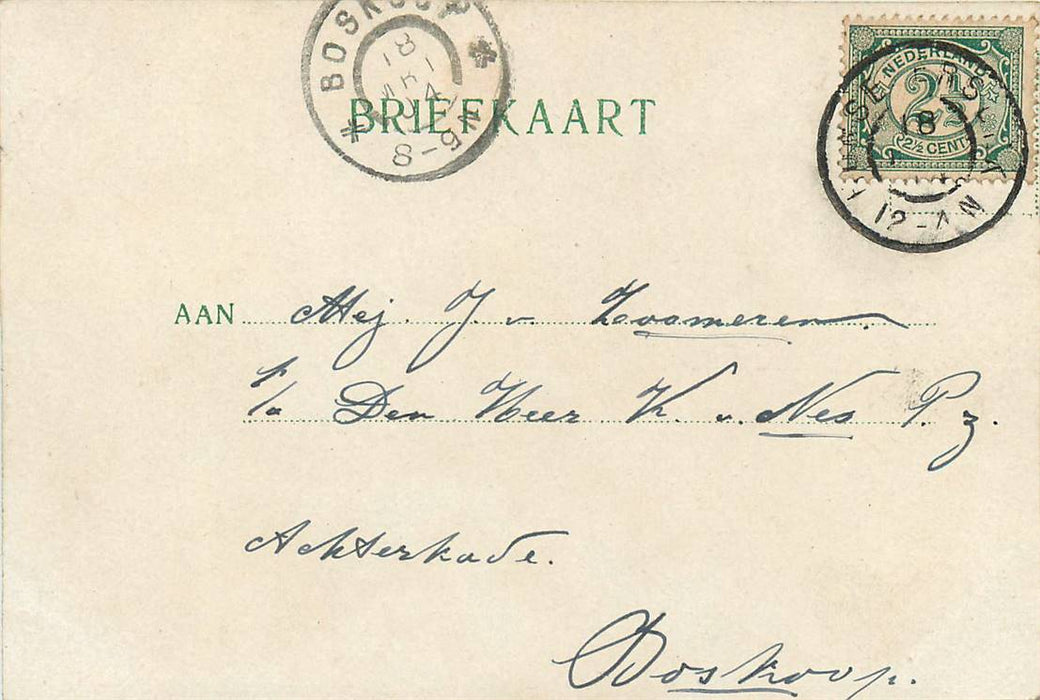 BOSKOOP
18
5-8N
BRIEFKAART
NEDERLAND
2½
2½ CENT
18
12-1N
AAN Mej. J. v. Zoomeren.
p/a Den Heer K. v. Nes P.z.
Achterkade.
Boskoop.